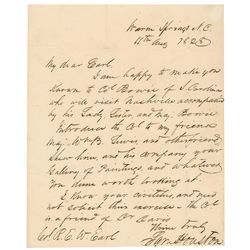 Warm Springs N.C.
11th Aug 1828
My dear Earl.
I am happy to make you
known to Col Bowie of S. Carolina
who will visit Nashville accompanied
by his Lady, Sister, and May. Bowie
Introduce the Col to my friends
Maj. Wm B. Lewis, and other friends
Show him, and his company your
Gallery of Paintings, and whatever
you deem worth looking at.
I know your civilities, and need
not the Col
is a friend of
Thine truly
Sam Houston
Col R. E. W. Earl